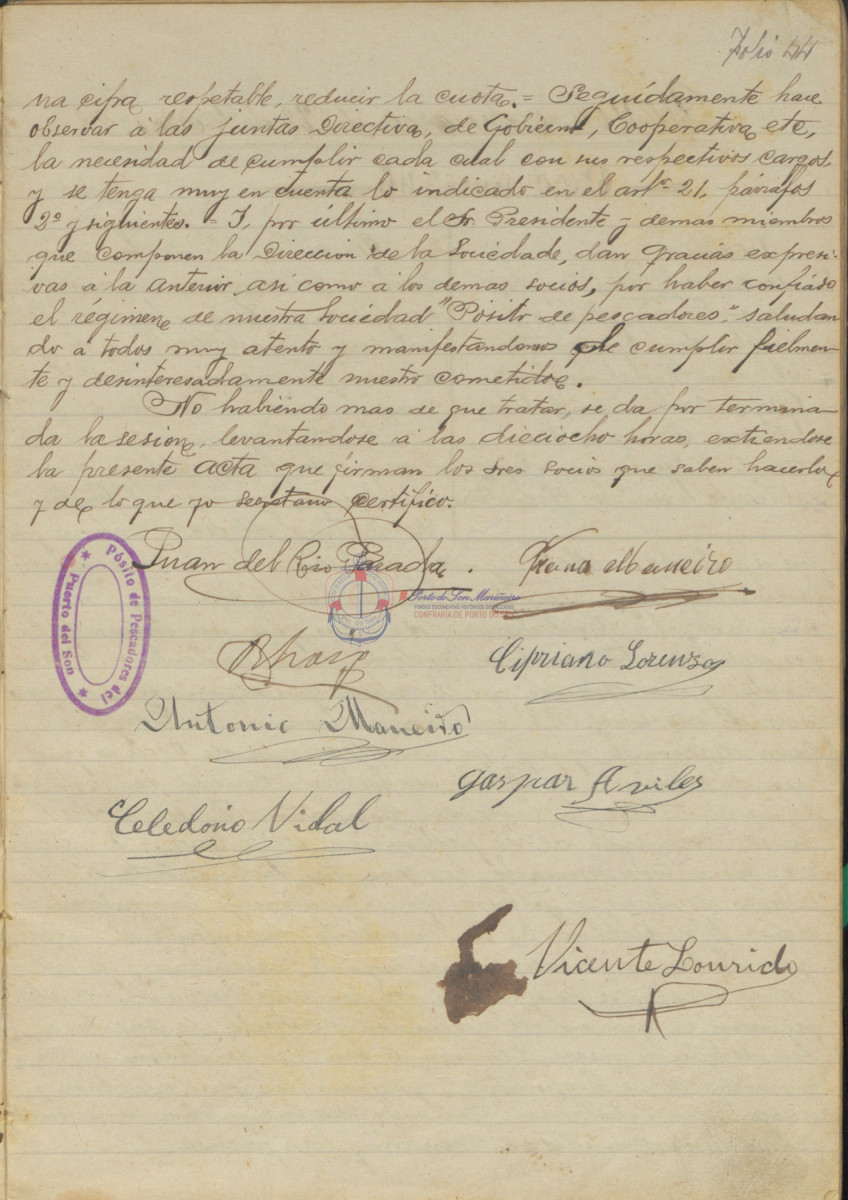 Folio 44
na cifra respetable, reducir la cuota. = Seguídamente hace
observar á las juntas Directiva, de Gobierno, Cooperativa etc,
la necesidad de cumplir cada cual con sus respectivos cargos,
y se tenga muy en cuenta lo indicado en el artº 21, párrafos
2º y siguientes. = I, por último el Sr. Presidente y demas miembros
que componen la Direccion de la Sociedade, dan gracias expresi-
vas á la anterior, asi como á los demas socios, por haber confiado
el régimen de nuestra sociedad "Pósito de pescadores", saludan-
do á todos muy atento y manifestandonos de cumplir fielmen-
te y desinteresadamente nuestro cometido.
No habiendo mas de que tratar, se da por termina-
da la sesion, levantandose á las dieciocho horas, extiendose
la presente acta que firman los Sres socios que saben hacerlo,
y de lo que yo secretario certifico.
Juan del Rio Parada.
Cipriano Lorenzo
Antonio Maneiro
Gaspar Aviles
Celedonio Vidal
Vicente Lourido
Pósito de Pescadores del
Puerto del Son
Porto do Son Mariñeiro
FONDOS DOCUMENTAIS HISTÓRICOS DIXITALIZADOS
CONFRARÍA DE PORTO DO SON